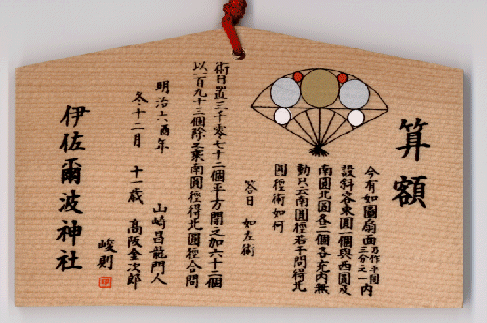 算額
今有如圖扇面三分之一内
設斜容東圓一個與西圓及
南圓北圓各二個各充内無
動只云南圓徑若干問得北
圓徑術如何
荅曰 如左術
術曰置三千零七十二個平方開之加六十二個
以一百九十三個除之乘南圓徑得北圓徑合問
明治六酉年 山崎昌龍門人
冬十二月 十一歳 高阪金次郎
峻則
伊佐爾波神社